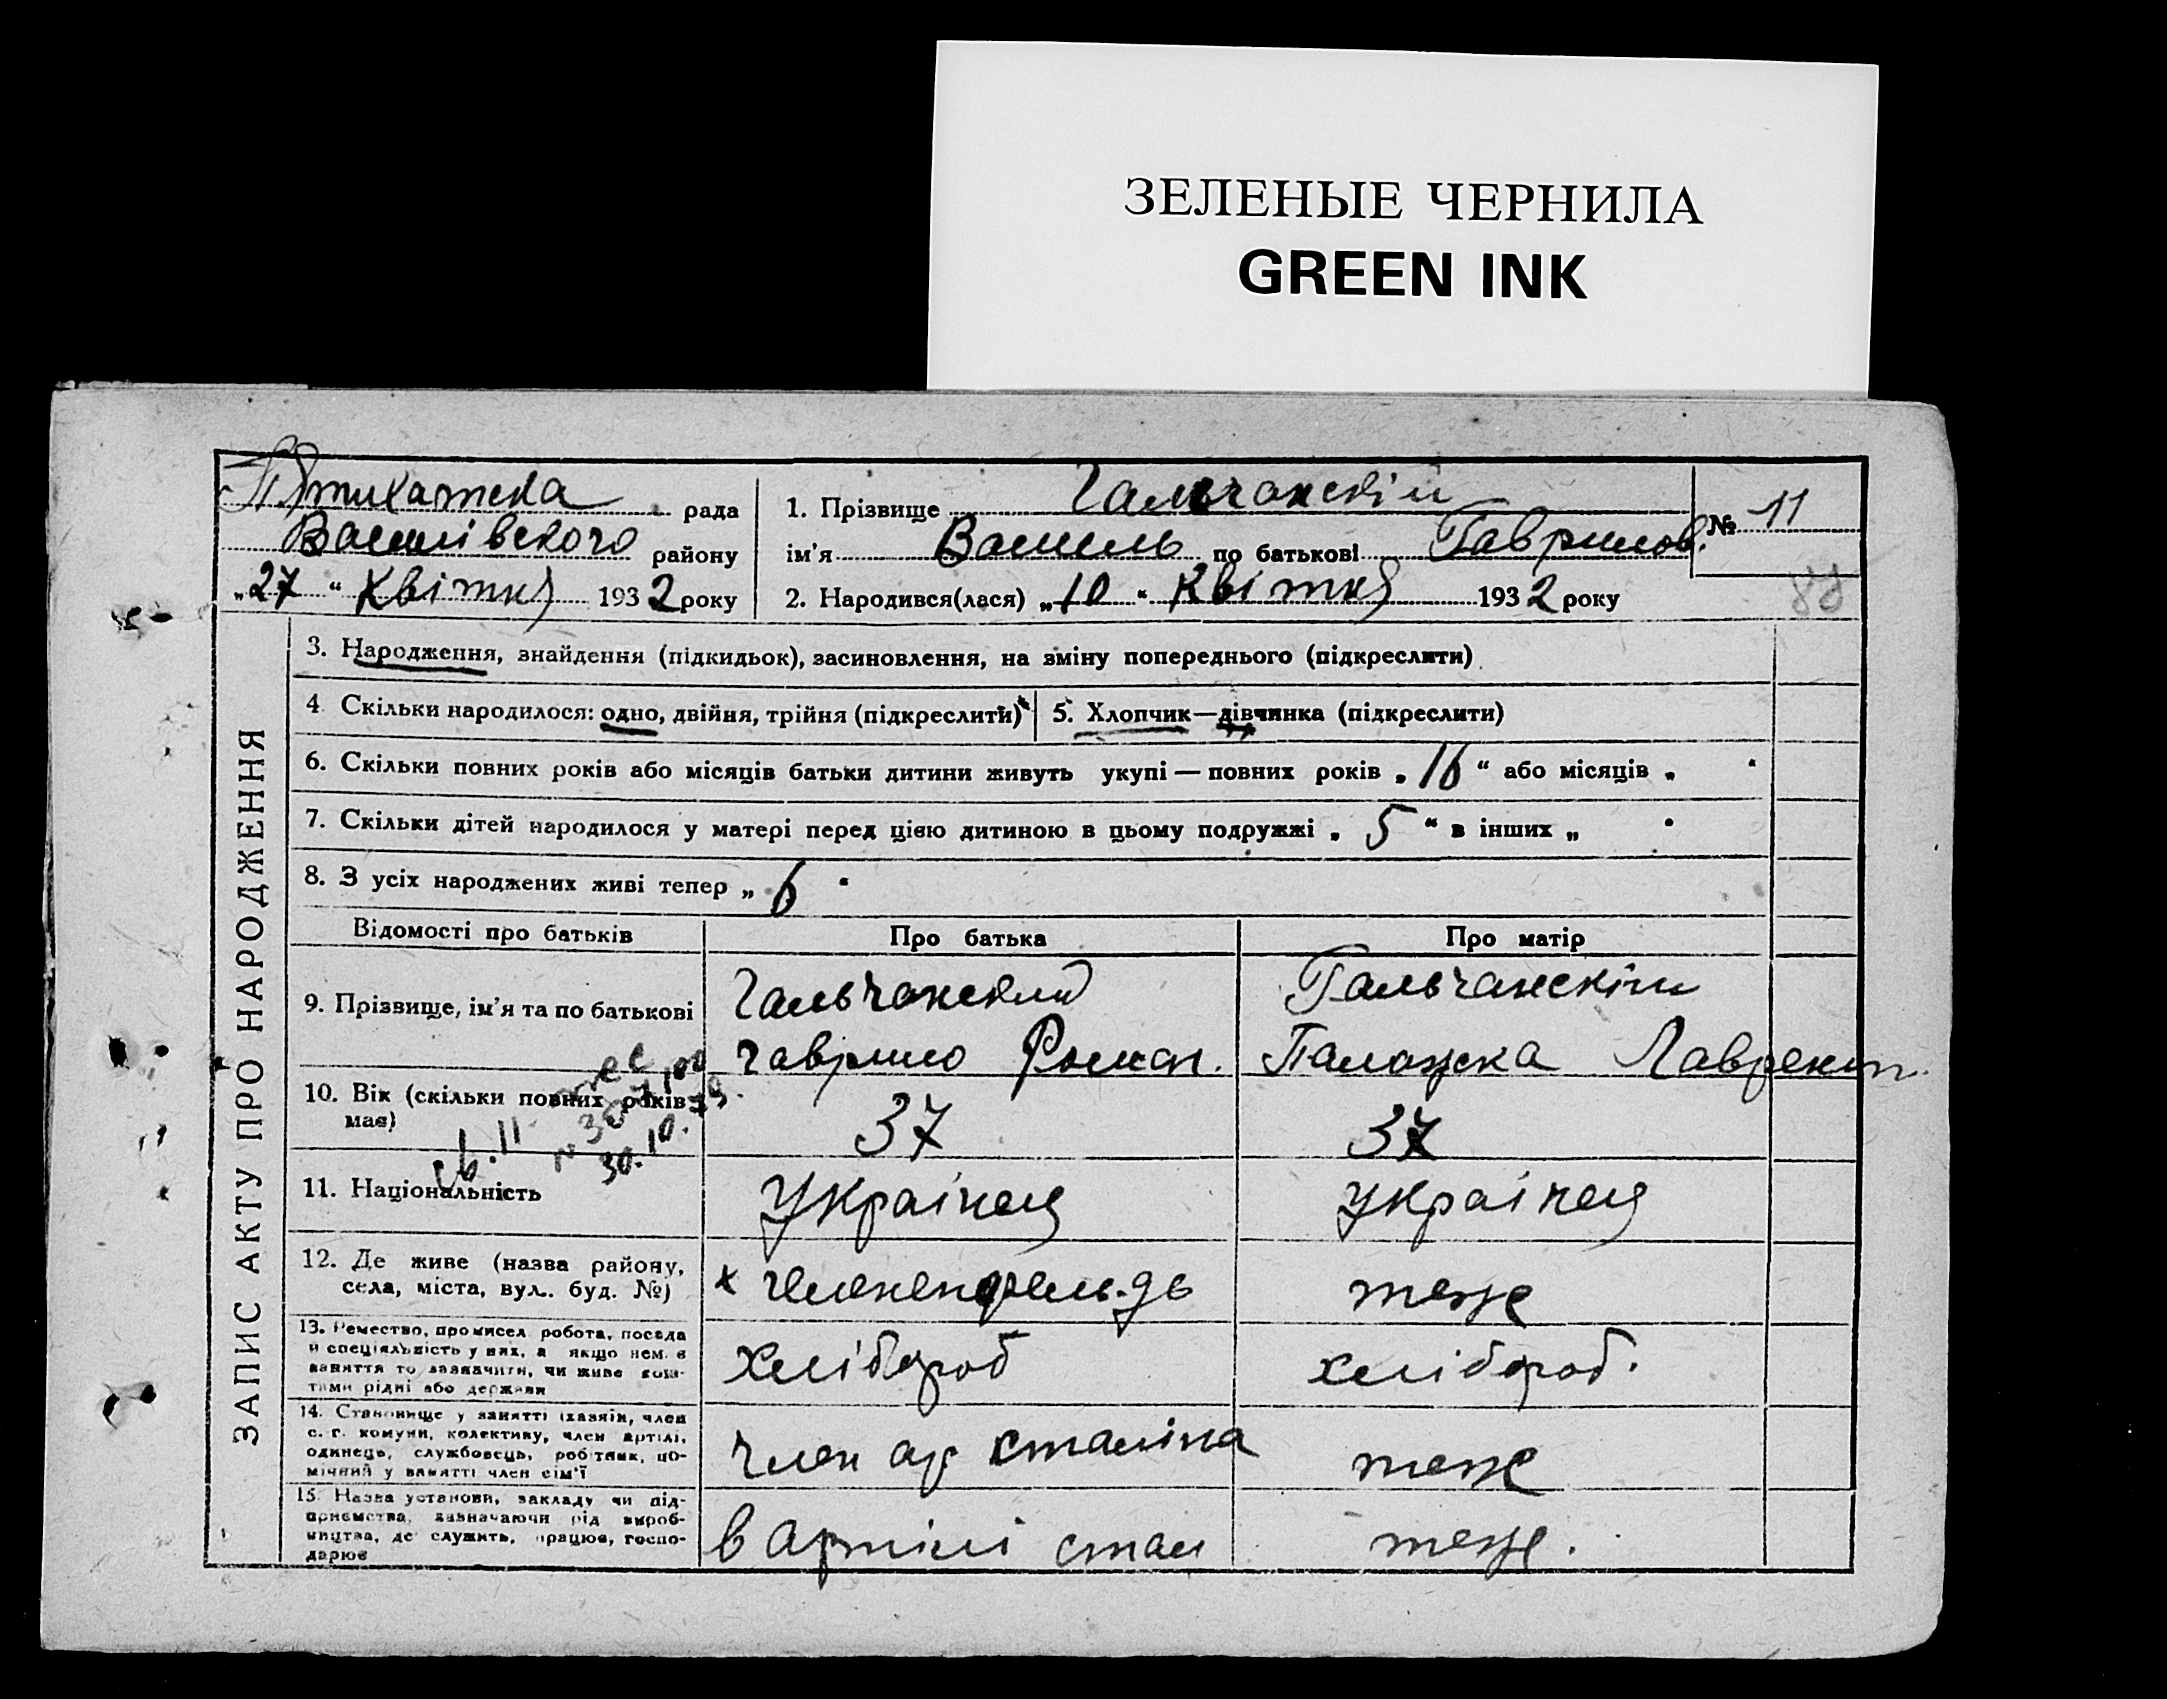 ЗЕЛЕНЫЕ ЧЕРНИЛА
GREEN INK
Пятихатска рада
Василівского району
„27“ Квітня 1932 року
1. Прізвище Гальчанскій
ім'я Василь по батькові Гаврилов.
2. Народився(лася) „10“ Квітня 1932 року
№ 11
ЗАПИС АКТУ ПРО НАРОДЖЕННЯ
3. Народження, знайдення (підкидьок), засиновлення, на зміну попереднього (підкреслити)
4 Скільки народилося: одно, двійня, трійня (підкреслити)
5. Хлопчик—дівчинка (підкреслити)
6. Скільки повних років або місяців батьки дитини живуть укупі — повних років „16“ або місяців „ “
7. Скільки дітей народилося у матері перед цією дитиною в цьому подружжі „5“ в інших „ “
8. З усіх народжених живі тепер „6“
Відомості про батьків Про батька Про матір
9. Прізвище, ім'я та по батькові
Гальчанский
Гаврило Роман.
Гальчанскій
Палажка Лаврент.
10. Вік (скільки повних років має)
37
37
св. 11
30.10.
11. Національність
Украінец
Украінец
12. Де живе (назва району,
села, міста, вул.. буд. №)
теже
13. Ремество, промисел робота, посада
й спеціяльність у них, а якщо нем. в
заняття то зазначити, чи живе кош-
тами рідні або держави
хлібороб
хлібороб.
14. Становище у занятті (хазяїн, член
с. г. комуни, колективу, член артілі,
одинець, службовець, робітник, по-
мічний у занятті член сім'ї
член ар сталіна
теже
15. Назва установи, закладу чи під-
приємства, зазначаючи рід вироб-
ництва, де служить, працює, госпо-
дарює
в артілі стал
теже.